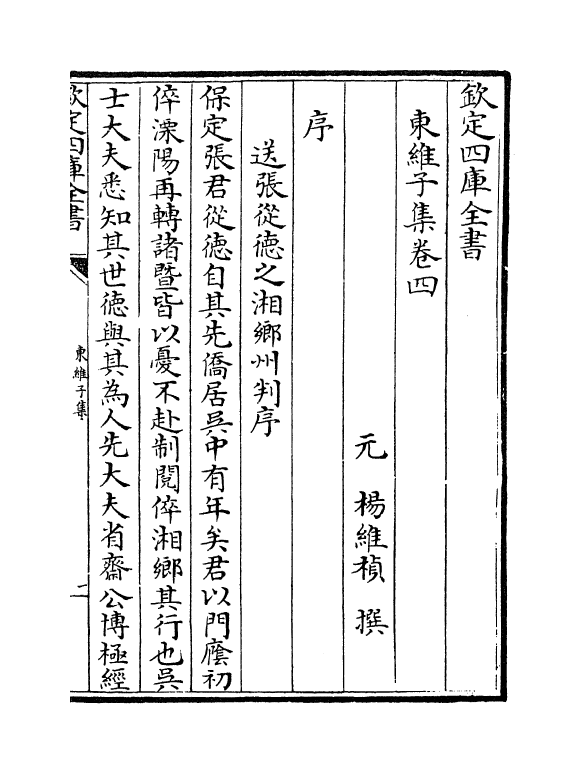 欽定四庫全書
東維子集卷四
元　楊維楨　撰
序
送張從徳之湘鄉州判序
保定張君從徳自其先僑居吳中有年矣君以門廕初
倅溧陽再轉諸暨皆以憂不赴制闋倅湘鄉其行也吳
士大夫悉知其世徳與其為人先大夫省齋公博極經
欽定四庫全書
東維子集